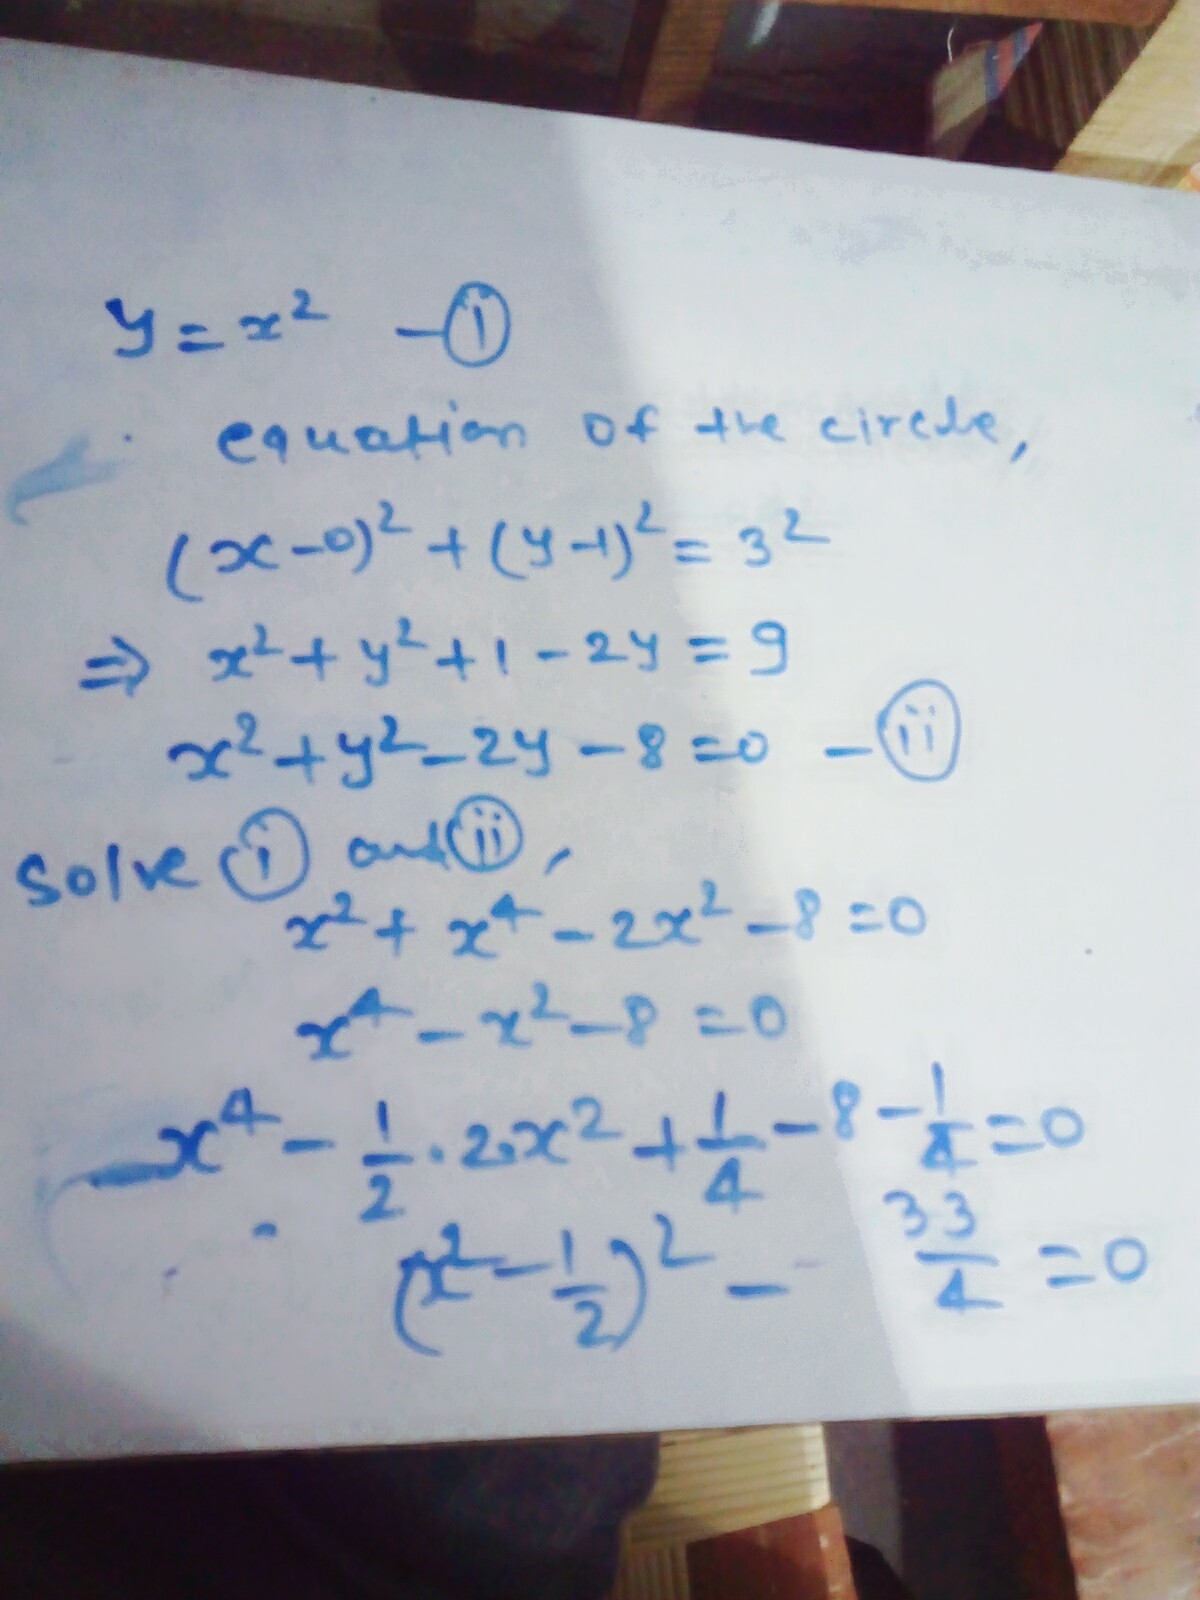 y = x² – (i)
equation of the circle,
(x-0)² + (y-1)² = 3²
⇒ x² + y² + 1 - 2y = 9
x² + y² - 2y - 8 = 0 – (ii)
Solve (i) and (ii),
x² + x⁴ - 2x² - 8 = 0
x⁴ - x² - 8 = 0
x⁴ - 1/2 · 2·x² + 1/4 - 8 - 1/4 = 0
(x² - 1/2)² - 33/4 = 0